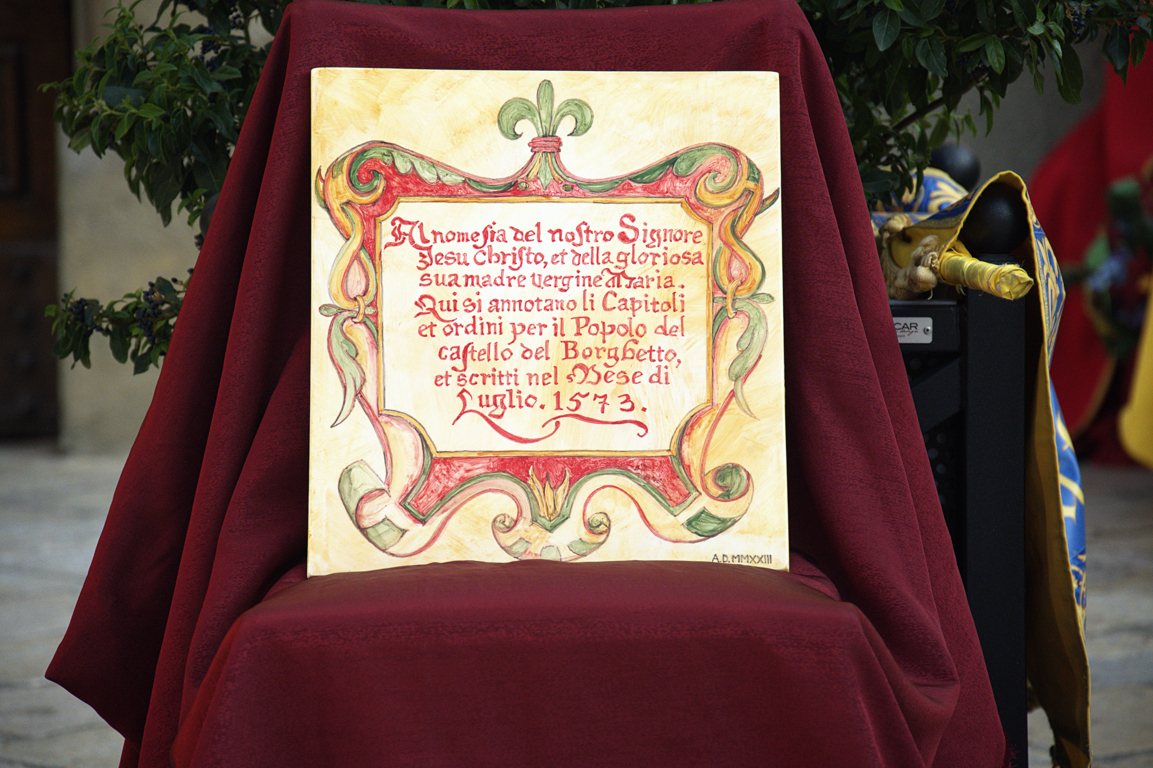 Al nome sia del nostro Signore
Jesu Christo, et della gloriosa
sua madre vergine Maria.
Qui si annotano li Capitoli
et ordini per il Popolo del
castello del Borghetto,
et scritti nel Mese di
Luglio. 1573.
A.D. MMXXIII
CAR